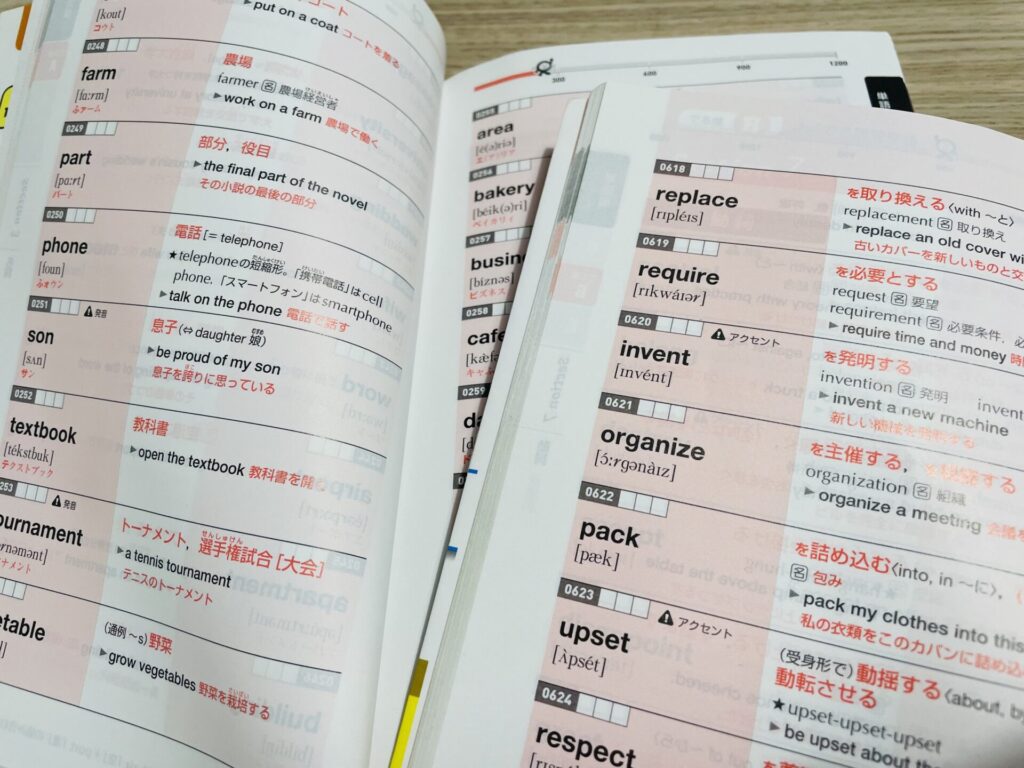 [kout]
コウト
コート
▶put on a coat コートを着る
0248
farm
[fɑːrm]
ふァーム
農場
farmer 名 農場経営者
▶work on a farm 農場で働く
0249
part
[pɑːrt]
パート
部分，役目
▶the final part of the novel
その小説の最後の部分
0250
phone
[foun]
ふォウン
電話 [= telephone]
★telephoneの短縮形。「携帯電話」はcell
phone.「スマートフォン」はsmartphone
▶talk on the phone 電話で話す
0251
発音
son
[sʌn]
サン
息子 (⇔ daughter 娘)
▶be proud of my son
息子を誇りに思っている
0252
textbook
[tékstbuk]
テクストブック
教科書
▶open the textbook 教科書を開
0253
発音
ournament
トーナメント，選手権試合 [大会]
▶a tennis tournament
テニスのトーナメント
etable
(通例 ~s) 野菜
▶grow vegetables 野菜を栽培する
300
600
900
1200
単語
0255
area
[é(ə)riə]
0256
bakery
[béik(ə)ri]
ベイカリィ
0257
busin
[bíznəs]
ビズネス
0258
cafe
キャふ
0259
da
0618
replace
[rɪpléɪs]
を取り換える〈with ~と〉
replacement 名 取り換え
▶replace an old cover wi
古いカバーを新しいものと交
0619
require
[rɪkwáɪər]
を必要とする
request 名 要望
requirement 名 必要条件，必
▶require time and money 時間
0620
アクセント
invent
[ɪnvént]
を発明する
invention 名 発明 invent
▶invent a new machine
新しい機械を発明する
0621
organize
[ɔ́ːrgənàɪz]
を主催する，
organization 名 組織
▶organize a meeting 会議を
0622
pack
[pæk]
を詰め込む〈into, in ~に〉，
名 包み
▶pack my clothes into this
私の衣類をこのカバンに詰め込
0623
アクセント
upset
[ʌ̀psét]
(受身形で) 動揺する〈about, by
動転させる
★upset-upset-upset
▶be upset about the
0624
respect
Section 7